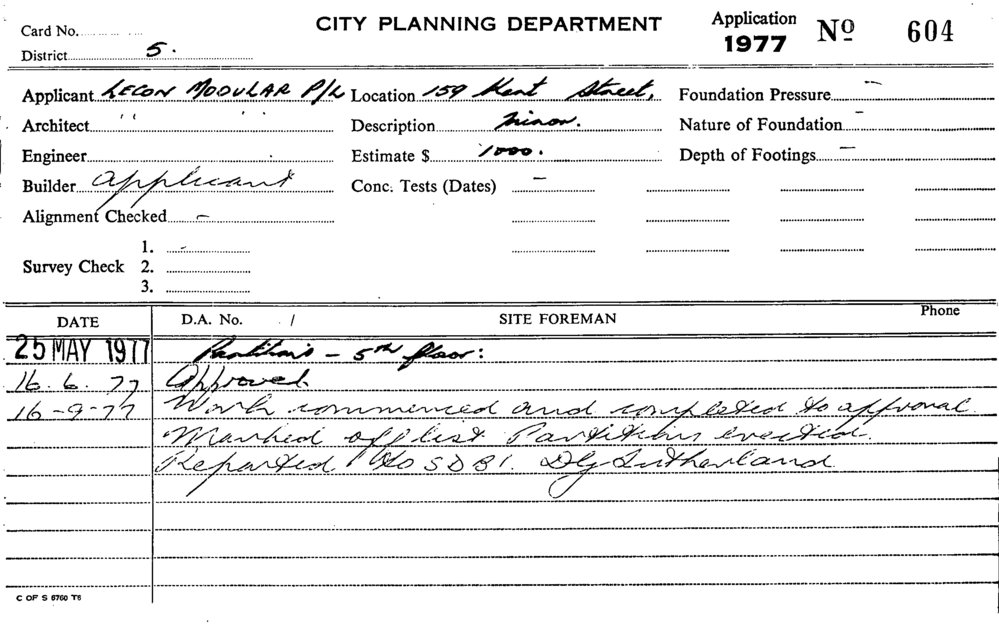 Card No.
CITY PLANNING DEPARTMENT
Application 1977 Nº 604
District 5.
Applicant LECON MODULAR P/L Location 159 Kent Street, Foundation Pressure –
Architect " " Description Minor. Nature of Foundation –
Engineer Estimate $ 1000. Depth of Footings –
Builder Applicant Conc. Tests (Dates) –
Alignment Checked –
1. –
Survey Check 2.
3.
DATE D.A. No. / SITE FOREMAN Phone
25 MAY 1977 Partitions – 5th floor:
16. 6. 77 Approved.
16-9-77 Work commenced and completed to approval.
Marked off list Partitions erected.
Reported to SDBI. DG Sutherland
C OF S 6760 T6